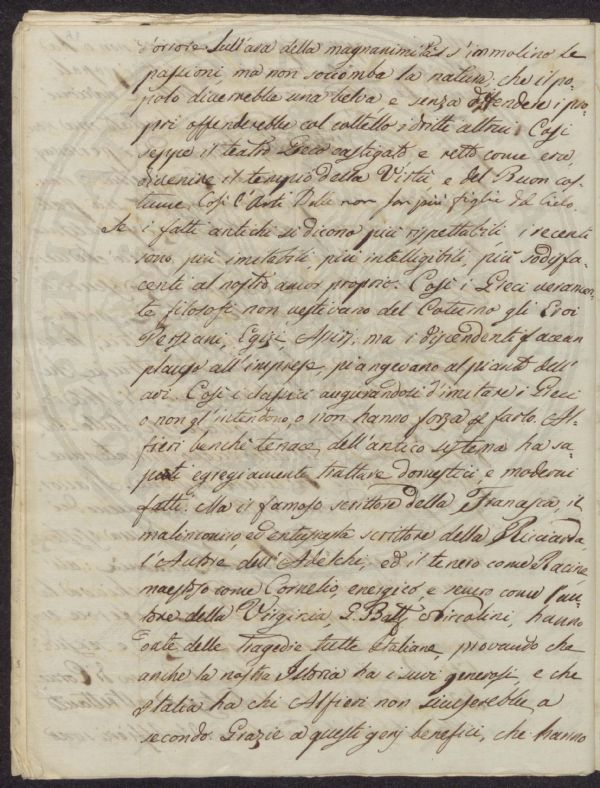 d'orrore Sull'ara della magnanimità s'immolino le
passioni, ma non socomba la natura: che il po-
polo diverrebbe una belva e senza difendere i pro-
pri offenderebbe col coltello i dritti altrui. Così
seppe il teatro Greco castigato e retto come era,
divenire il tempio della Virtù e del Buon cos-
tume. Così l'Arti Belle non son più figlie del Cielo.
Se i fatti antichi si dicono più rispettabili i recenti
sono più imitabili, più intelligibili, più sodisfa-
centi al nostro amor proprio. Così i Greci veramen-
te filosofi non vestivano del Coturno gli Eroi
Persiani, Egizi, Assirj, ma i discendenti facean
plauso all'imprese, piangevano al pianto dell'
avi. Così i classici augurandosi d'imitare i Greci
o non gl'intendono, o non hanno forza di farlo. Al-
fieri benchè tenace dell'antico sistema ha sa-
puti egregiamente trattare domestici, e moderni
fatti. Ma il famoso scrittore della Francesca, il
malinconico ed entusiasta scrittore della Ricciarda,
l'Autore dell'Adelchi, ed il tenero come Racine
maestoso come Cornelio, energico, e severo come l'au-
tore della Virginia, G. Batt. Niccolini, hanno
date delle tragedie tutte Italiane, provando che
anche la nostra Istoria ha i suoi generosi, e che
l'Italia ha chi Alfieri non sdegnerebbe a
secondo. Grazie a questi genj benefici, che hanno